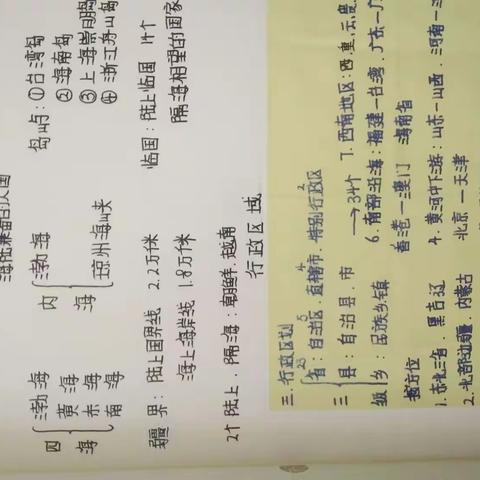 海陆兼备的大国
四海
渤海
黄海
东海
南海
内海
渤海
琼州海峡
岛屿：①台湾岛
②海南岛
③上海崇明岛
④浙江舟山岛
疆界：陆上国界线 2.2万千米
海上海岸线 1.8万千米
临国：陆上临国 14个
隔海相望的国家
2个 陆上．隔海：朝鲜．越南
行政区域
三．行政区划
三级
省：自治区．直辖市．特别行政区
23 5 4 2
县：自治县．市 →34个
乡：民族乡．镇
按方位
1．东北三省：黑吉辽
2．北部边疆：内蒙古
4．黄河中下游：山东—山西．河南—
北京—天津
6．南部沿海：福建—台湾．广东—
香港—澳门 海南省
7．西南地区：西．重．云．贵